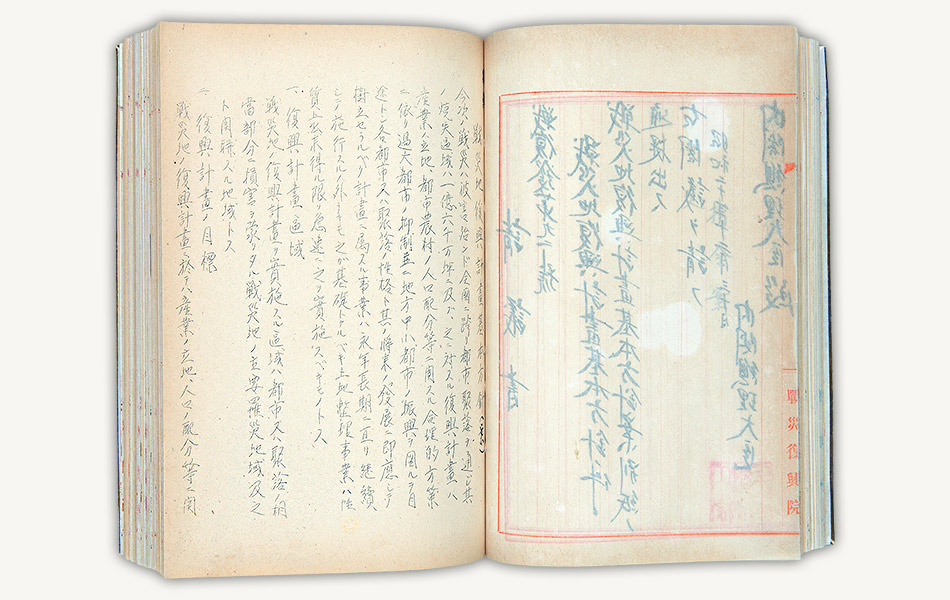 戰復發第九二號
請議書
戰災地復興計畫基本方針ノ件
戰災地復興計畫基本方針案別紙ノ
通提出ス
右閣議ヲ請フ
内閣總理大臣
内閣總理大臣殿
戰災復興院
戰災地復興計畫基本方針(案)
今次ノ戰災ハ被害殆ンド全國ニ跨リ都市、聚落ヲ通ジ其
ノ焼失區域ハ一億六千万坪ニ及ブ、之ニ対スル復興計畫ハ
産業ノ立地、都市農村ノ人口配分等ニ関スル合理的方策
ニ依リ過大都市ノ抑制並ニ地方中小都市ノ振興ヲ図ルヲ目
途トシ各都市又ハ聚落ノ性格ト其ノ将来ノ発展ニ即應シテ
樹立セラルベク計畫ニ属スル事業ハ永年長期ニ亘リ継續
シテ施行スルノ外ナキモ之ガ基礎トナルベキ土地整理事業ハ性
質上出來得ル限リ急速ニ之ヲ実施スベキモノトス
一、復興計畫區域
戦災地ノ復興計畫ヲ實施スル區域ハ都市又ハ聚落ノ相
當部分ニ損害ヲ蒙リタル戦災地ノ主要罹災地域及之
ト関聯スル地域トス
二、復興計畫ノ目標
戦災地ノ復興計畫ニ於テハ産業ノ立地、人口配分等ニ関